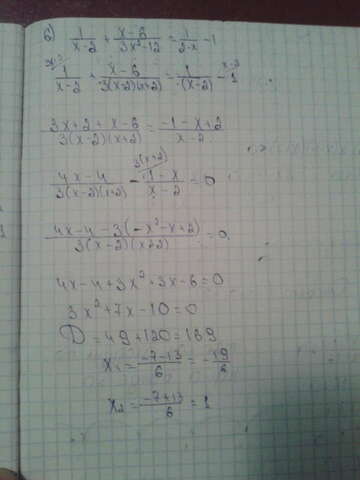 б) 1/(x-2) + (x-6)/(3x²-12) = 1/(2-x) - 1
1/(x-2) + (x-6)/(3(x-2)(x+2)) = 1/(-(x-2)) - 1
(3x+2+x-6)/(3(x-2)(x+2)) = (-1-x+2)/(x-2)
(4x-4)/(3(x-2)(x+2)) - (1-x)/(x-2) = 0
(4x-4-3(-x²-x+2))/(3(x-2)(x+2)) = 0
4x-4+3x²+3x-6=0
3x²+7x-10=0
D=49+120=169
x₁=(-7-13)/6=-19/6
x₂=(-7+13)/6=1